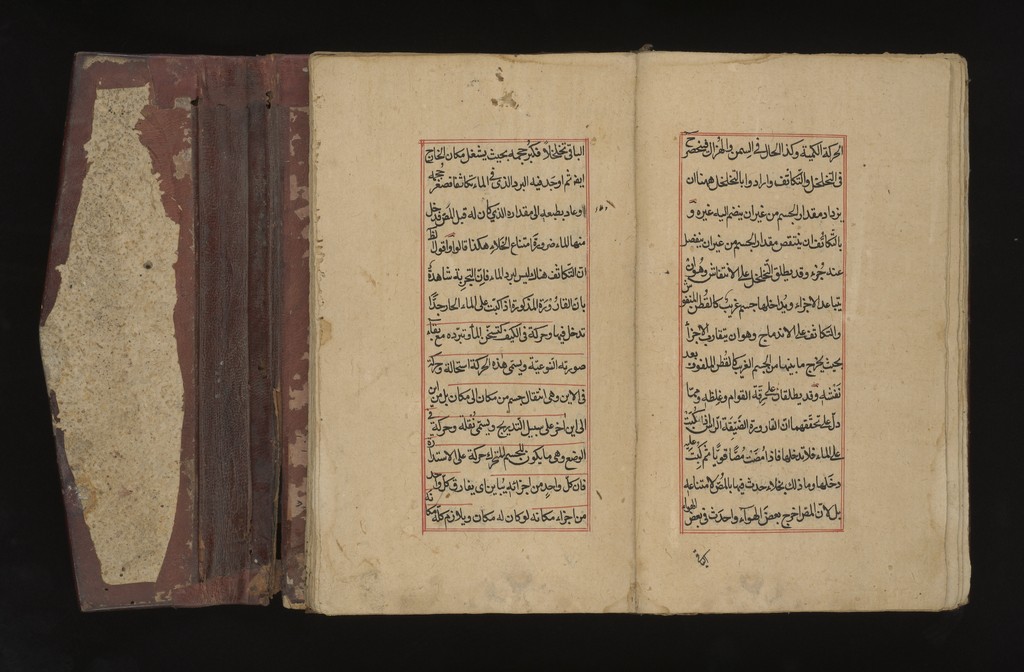 الحركة الكمية وكذا الحال في السمن والهزال فينحصر ح
في التخلخل والتكاثف وارادوا بالتخلخل ههنا ان
يزداد مقدار الجسم من غير ان ينضم اليه غيره و
بالتكاثف ان ينتقص مقدار الجسم من غير ان ينفصل
عنه جزء وقد يطلق التخلخل على الانتفاش وهو ان
يتباعد الاجزاء ويداخلها جسم غريب كالقطن المنفوش
والتكاثف على الاندماج وهو ان يتقارب الاجزأ
بحيث يخرج ما بينها من الجسم الغريب كالقطن الملفوف بعد
نفشه وقد يطلقان على رقة القوام وغلظه ومما
دل على تحققهما ان القارورة الضيقة الراس اذا كبت
على الماء فلا تدخلها فاذا مصت مصا قويا ثم كبت عليه
دخلها وما ذلك بخلاء حدث فيها بالمص لامتناعه
بل لان المص اخرج بعض الهواء واحدث في بعض الهواء
الباقي تخلخلا فكبر حجمه بحيث يشغل مكان الخارج
ايضا ثم اوجد فيه البرد الذي في الماء تكاثفا فصغر حجمه
وعاد بطبعه الى مقداره الذي كان له قبل المص فدخل
منها الماء ضرورة امتناع الخلاء هكذا قالوا واقول
ان التكاثف هناك ليس لبرد الماء فان التجربة شاهدة
بان القارورة المذكورة اذا كبت على الماء الحار جدا
تدخل فيها وحركة في الكيف كتسخن الماء وتبرده مع بقاء
صورته النوعية ويسمى هذه الحركة استحالة وحركة
في الاين وهي انتقال جسم من مكان الى مكان بل من اين
الى اين اخر على سبيل التدريج ويسمى نقلة وحركة في
الوضع وهي ما يكون للجسم المتحرك حركة على الاستدارة
فان كل واحد من اجزائه يباين اي يفارق كل واحد
من اجزاء مكانه لو كان له مكان ويلازم كله مكانه